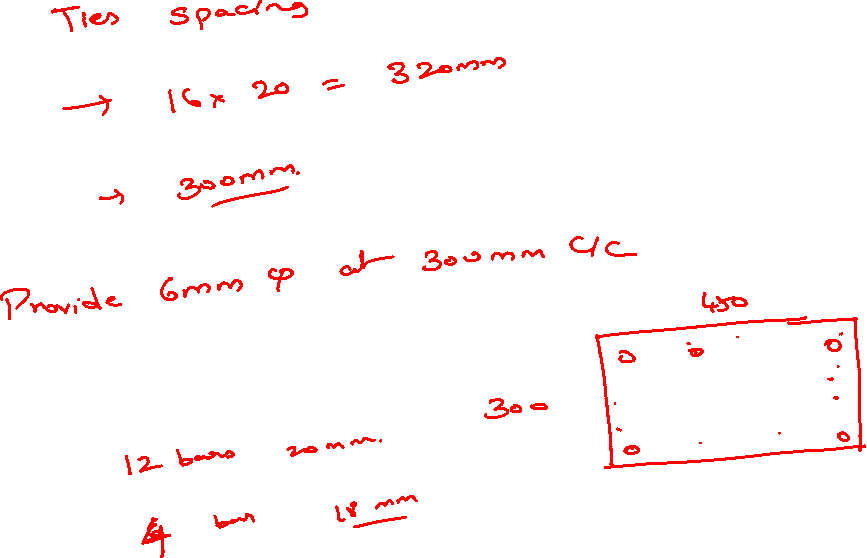 Ties spacing
→ 16 x 20 = 320mm
→ 300mm.
Provide 6mm φ at 300mm C/C
450
300
12 bars 20mm.
4 bars 18 mm